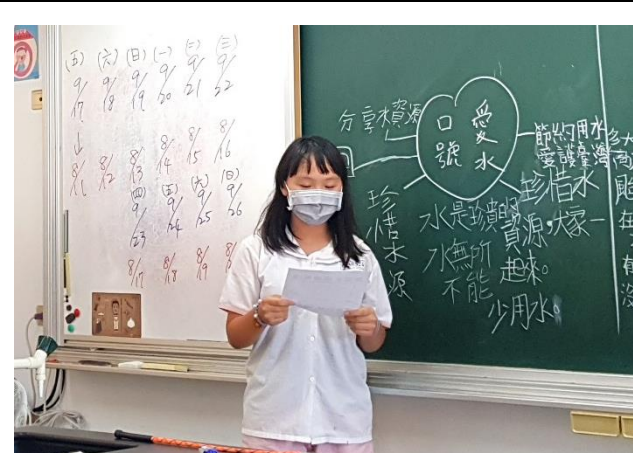 (五) (六) (日) (一) (二) (三)
9/17 9/18 9/19 9/20 9/21 9/22
↓
8/11 8/12 8/13 8/14 8/15 8/16
(四) (五) (六) (日)
9/23 9/24 9/25 9/26
8/17 8/18 8/19
分享水資源
口號
愛水
節約用水
愛護臺灣
珍惜水源
珍惜水
資源,大家一
起來
少用水。
水是珍貴的
水無所
不能